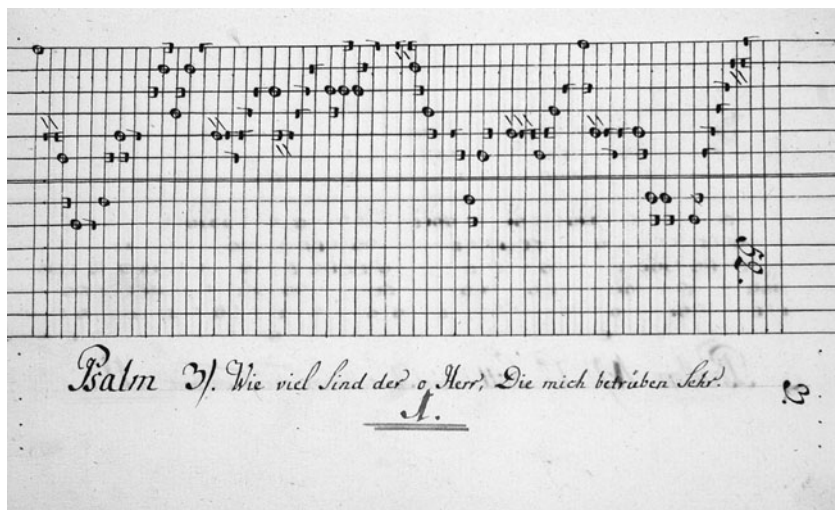 52.
Psalm 3). Wie viel sind der o Herr, Die mich betrüben sehr.
3.
1.